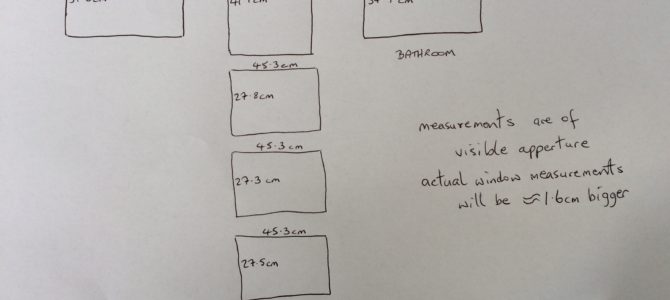 45.3cm
27.8cm
45.3cm
27.3 cm
45.3cm
27.5cm
BATHROOM
measurements are of
visible apperture
actual window measurements
will be ≈1.6cm bigger